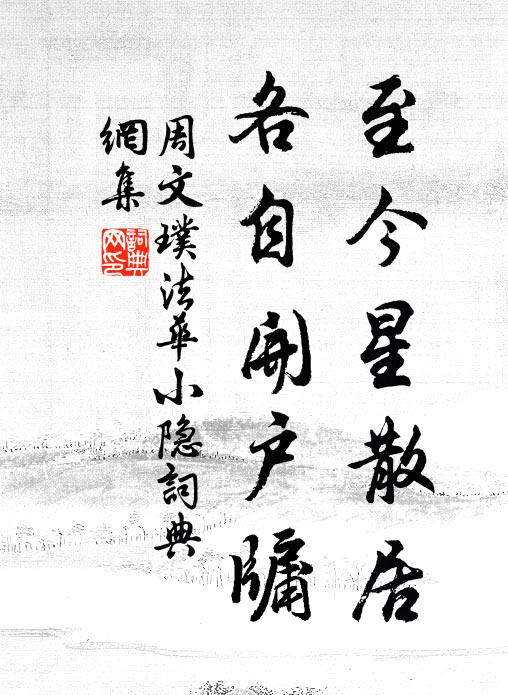 至今星散居
各自開户牖
周文璞法華小隐詞典
網集
詞典
网印